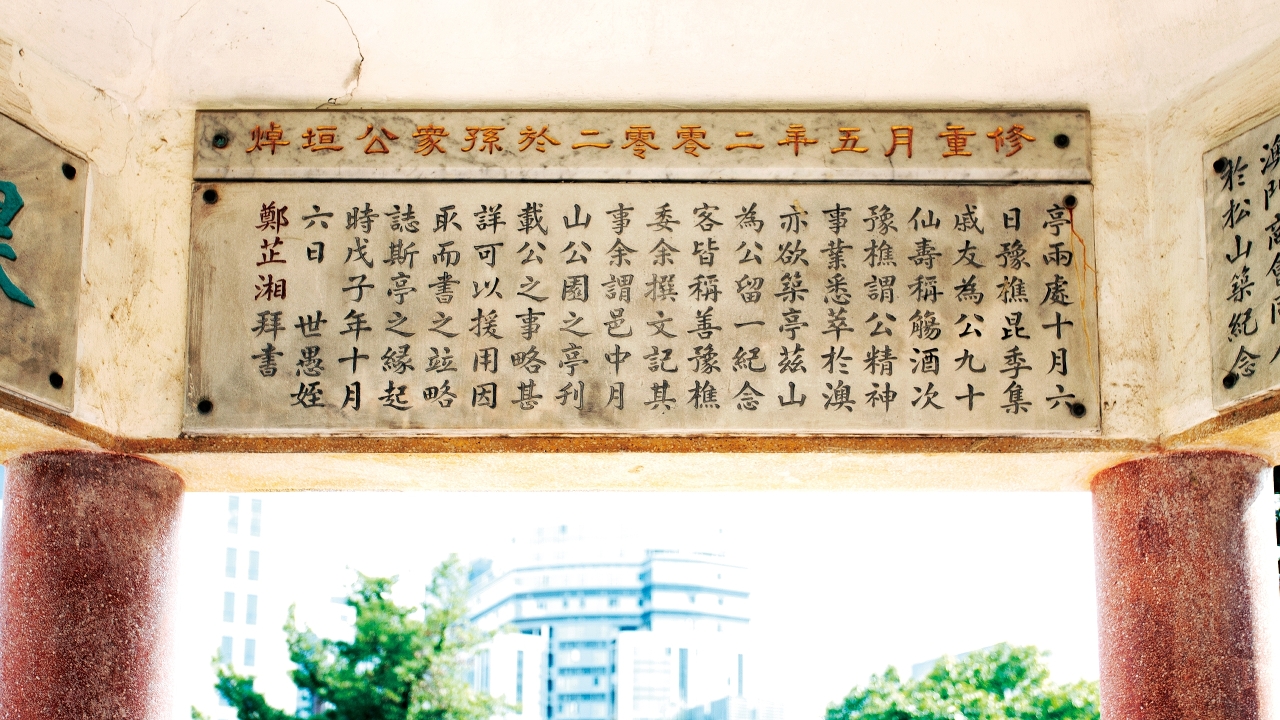 於松山築紀念
焯垣公眾孫於二零零二年五月重修
亭兩處十月六
日豫樵昆季集
戚友為公九十
仙壽稱觴酒次
豫樵謂公精神
事業悉萃於澳
亦欲築亭茲山
為公留一紀念
客皆稱善豫樵
委余撰文記其
事余謂邑中月
山公園之亭刊
載公之事略甚
詳可以援用因
取而書之竝略
誌斯亭之緣起
時戊子年十月
六日 世愚姪
鄭芷湘拜書